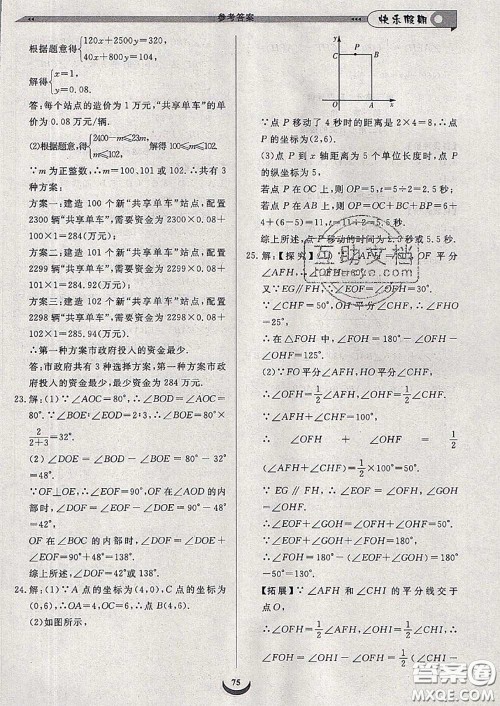 参考答案
快乐假期
根据题意得{120x+2500y=320,
40x+800y=110,
解得{x=1,
y=0.08.
答:每个站点的造价为1万元,“共享单车”的单价为0.08万元/辆.
(2)根据题意,得{2400-m≤23m,
m≤102.
解得100≤m≤102.
∵m为正整数,∴m=100、101或102.∴共有3种方案:
方案一:建造100个新“共享单车”站点,配置2300辆“共享单车”,需要资金为2300×0.08+100×1=284(万元);
方案二:建造101个新“共享单车”站点,配置2299辆“共享单车”,需要资金为2299×0.08+101×1=284.92(万元);
方案三:建造102个新“共享单车”站点,配置2298辆“共享单车”,需要资金为2298×0.08+102×1=285.84(万元).
∴第一种方案市政府投入的资金最少.
答:市政府共有3种选择方案,第一种方案市政府投入的资金最少,最少资金为284万元.
23.解:(1)∵∠AOC=80°,∴∠BOD=80°.
∵∠BOE:∠EOD=2:3,∴∠BOE=80°×
2/(2+3)=32°.
(2)∠DOE=∠BOD-∠BOE=80°-32°
=48°.
∵OF⊥OE,∴∠EOF=90°,OF在∠AOD的内部时,∠DOF=∠EOF-∠DOE=90°-48°
=42°.
OF在∠BOC的内部时,∠DOF=∠EOF+∠DOE=90°+48°=138°.
综上所述,∠DOF=42°或138°.
24.解:(1)∵A点的坐标为(4,0),C点的坐标为(0,6),∴OA=4,OC=6,∴点B(4,6).
(2)如图所示,
y
C
P
B
O
A
x
∵点P移动了4秒时的距离是2×4=8,∴点P的坐标为(2,6).
(3)点P到x轴距离为5个单位长度时,点P的纵坐标为5,
若点P在OC上,则OP=5,t=5÷2=2.5秒,
若点P在AB上,则OP=OC+BC+BP=6+4+(6-5)=11,t=11÷2=5.5秒.
综上所述,点P移动的时间为2.5秒或5.5秒.
互助文档
25.解:【探究】
∠AFH,∴∠OFH=
又∵EG∥FH,∴∠EOF=∠OFH=30°.
∵∠CHF=50°,OH平分∠CHF,∴∠FHO
=25°.
∴在△FOH中,∠FOH=180°-∠OFH-∠OHF=125°.
(2)∵FO平分∠AFH,HO平分∠CHF,
∴∠OFH=1/2∠AFH,∠OHF=1/2∠CHF.
∵∠AFH+∠CHF=100°,
∴∠OFH+∠OHF=
1/2(∠AFH+∠CHF)=1/2×100°=50°.
∵EG∥FH,∴∠EOF=∠OFH,∠GOH=∠OHF.
∴∠EOF+∠GOH=∠OFH+∠OHF=50°.
∵∠EOF+∠GOH+∠FOH=180°,
∴∠FOH=180°-(∠EOF+∠GOH)=180°-50°=130°.
【拓展】∵∠AFH和∠CHI的平分线交于点O,
∴∠OFH=1/2∠AFH,∠OHI=1/2∠CHI,∴
∠FOH=∠OHI-∠OFH=1/2(∠CHI-
75
答案圈
MXQE.COM